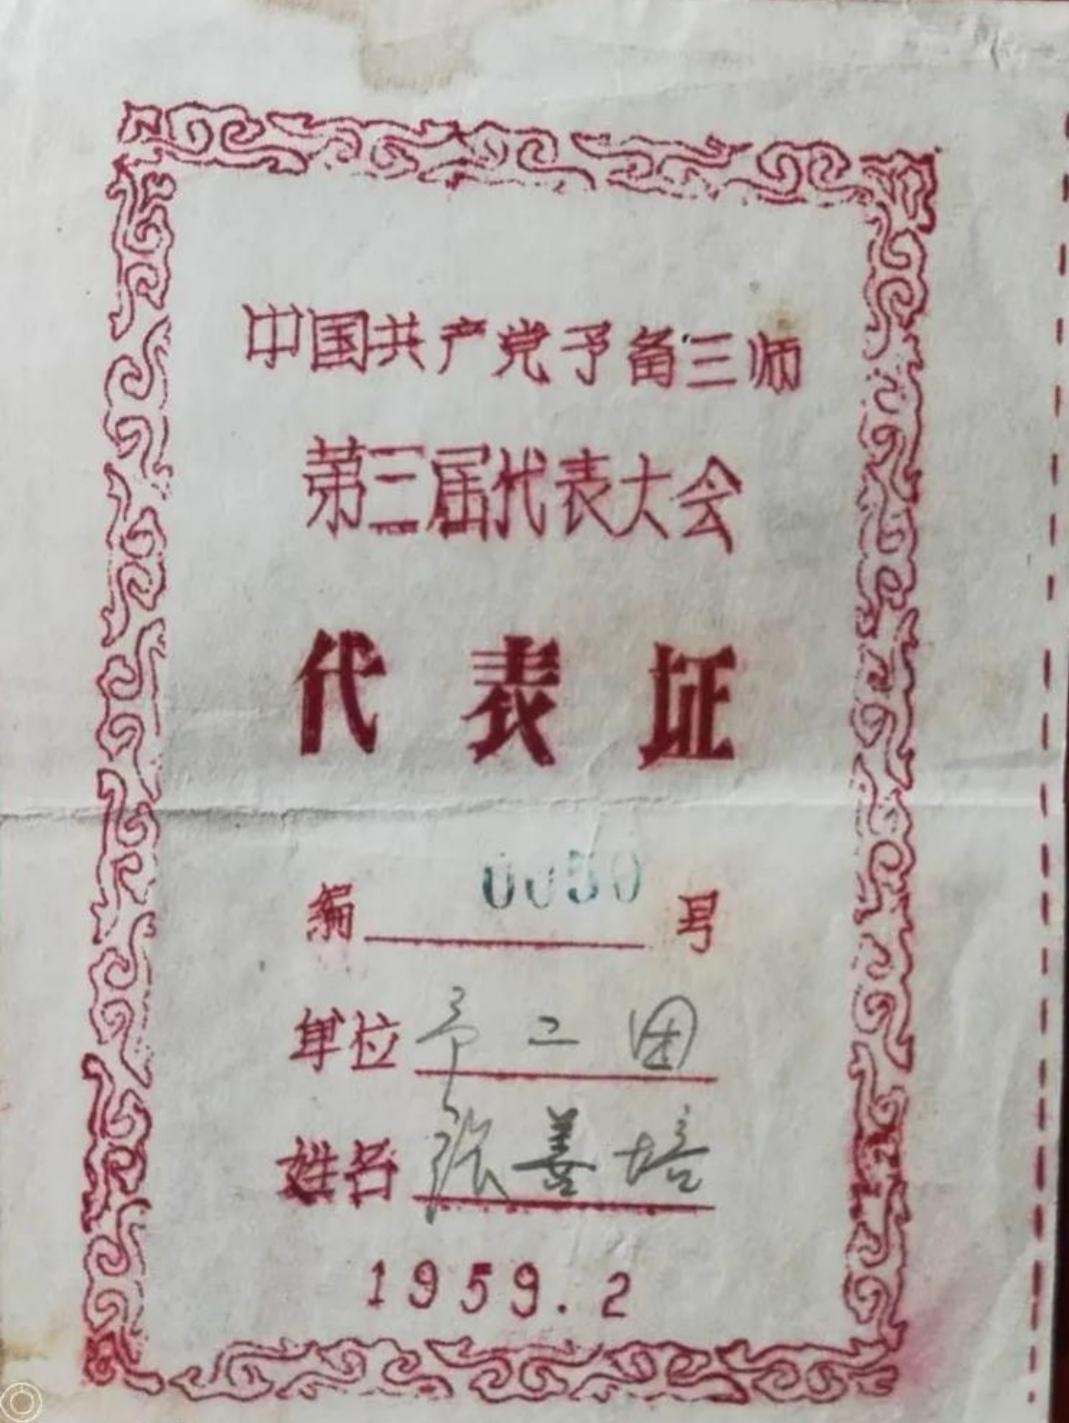 中国共产党予备三师
第三届代表大会
代表证
编 0050 号
单位 予二团
姓名 张善培
1959.2